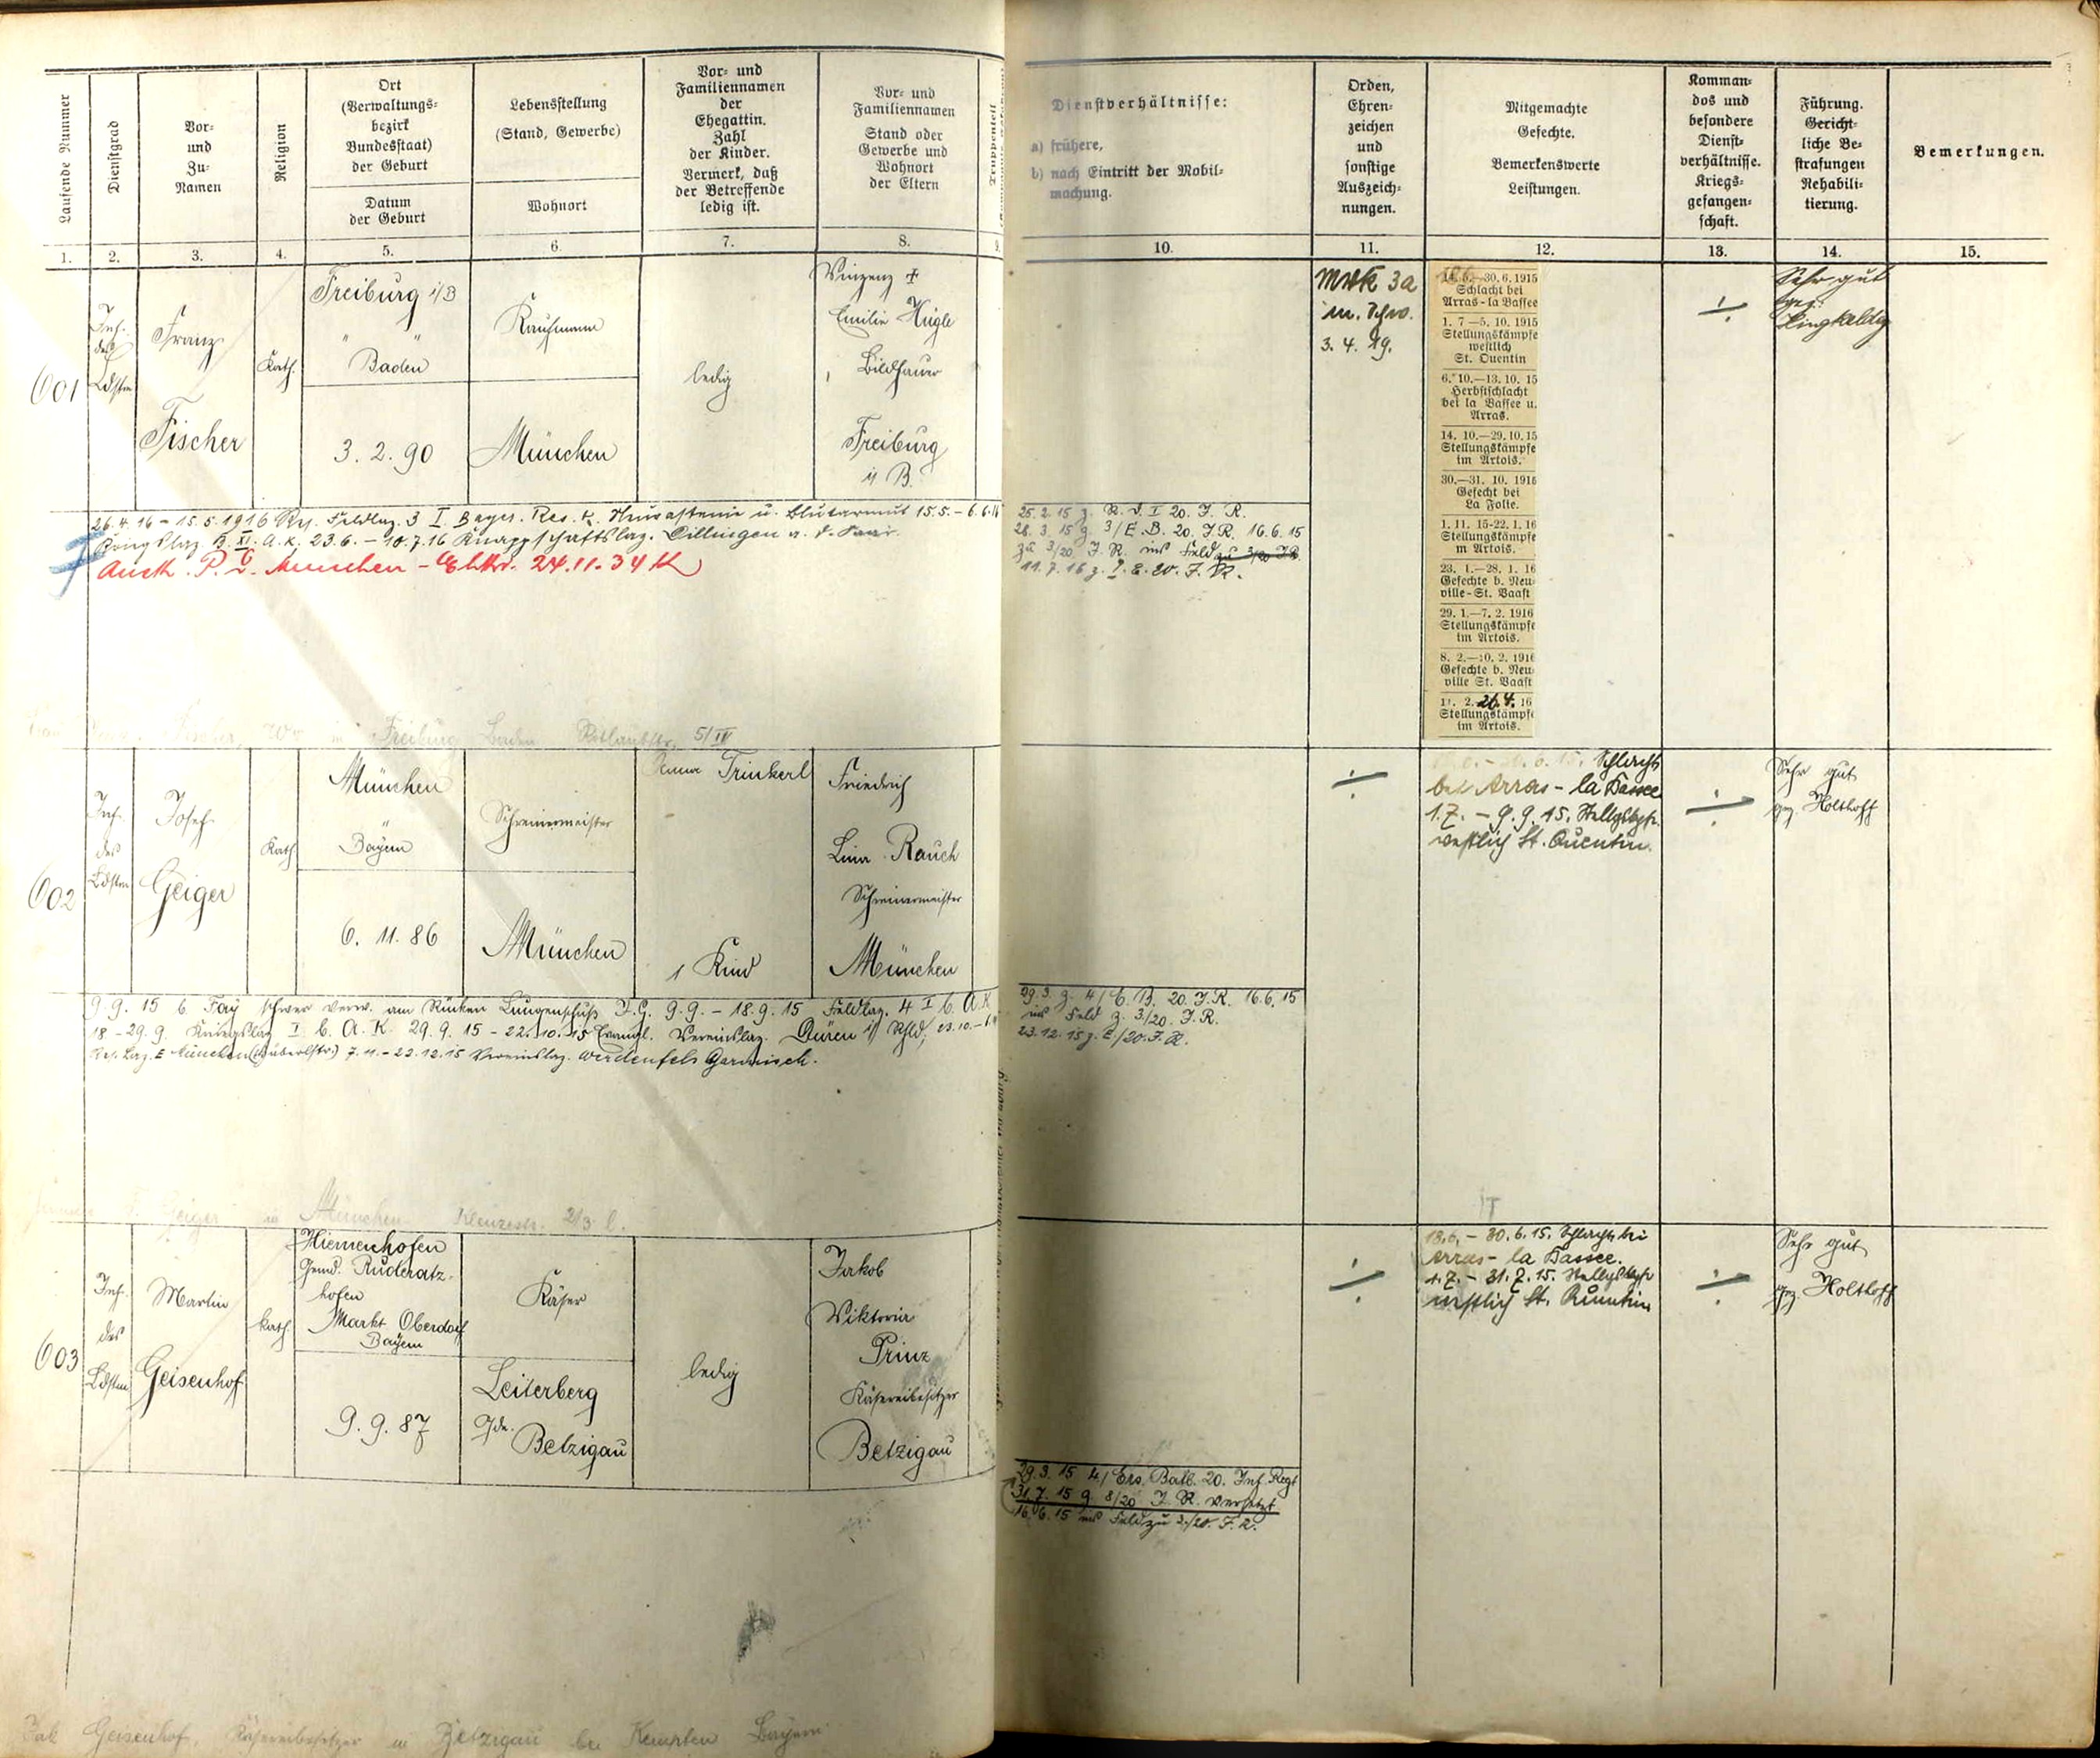 Laufende Nummer
Dienstgrad
Vor-
und
Zu-
Namen
Religion
Ort
(Verwaltungs-
bezirk
Bundesstaat)
der Geburt
Datum
der Geburt
Lebensstellung
(Stand, Gewerbe)
Wohnort
Vor- und
Familiennamen
der
Ehegattin.
Zahl
der Kinder.
Vermerk, daß
der Betreffende
ledig ist.
Vor- und
Familiennamen
Stand oder
Gewerbe und
Wohnort
der Eltern
Truppenteil
Dienstverhältnisse:
a) frühere,
b) nach Eintritt der Mobil-
machung.
Orden,
Ehren-
zeichen
und
sonstige
Auszeich-
nungen.
Mitgemachte
Gefechte.
Bemerkenswerte
Leistungen.
Komman-
dos und
besondere
Dienst-
verhältnisse.
Kriegs-
gefangen-
schaft.
Führung.
Gericht-
liche Be-
strafungen
Rehabili-
tierung.
Bemerkungen.
1. 2. 3. 4. 5. 6. 7. 8. 9. 10. 11. 12. 13. 14. 15.
601
Inf.
des
Ldstm
Franz
Fischer
Kath.
Freiburg i/B
" "
Baden
3. 2. 90
Kaufmann
München
ledig
Vinzenz +
Emilie Hügle
Bildhauer
Freiburg
i/ B.
26.4.16 – 15.5.1916 Feldlaz. 3 I. Bayer. Res. K. u. Blutarmut 15.5. – 6.6.16
Kriegslaz. A. K. 23.6. – 10.7.16 Knappschaftslaz. Dillingen a. d. Saar.
Ausk. P. D. Muenchen 24.11.34
25. 2. 15 z. R. D. I 20. J. R.
26. 3. 15 z. 3/E. B. 20. J.R. 16.6.15
zu 3/20 J. R. ins Feld zu 3/20 JR
11. 7. 16 z. E. 20. J. R.
MVK 3a
m. Schw.
3. 4. 19.
30. 6. 1915
Schlacht bei
Arras - la Bassee
1. 7 —5. 10. 1915
Stellungskämpfe
westlich
St. Quentin
6. 10.—13. 10. 15
Herbstschlacht
bei la Bassee u.
Arras.
14. 10.—29. 10. 15
Stellungskämpfe
im Artois.
30.—31. 10. 1915
Gefecht bei
La Folie.
1. 11. 15-22. 1. 16
Stellungskämpfe
m Artois.
23. 1.—28. 1. 16
Gefechte b. Neu-
ville - St. Vaast
29. 1.—7. 2. 1916
Stellungskämpfe
im Artois.
8. 2.—10. 2. 1916
Gefechte b. Neu-
ville St. Vaast
11. 2. 26. 4. 16
Stellungskämpfe
im Artois.
Sehr gut
gez:
Fischer, in Freiburg Baden 5/IV
602
Inf.
des
Ldstm
Josef
Geiger
Kath
München
"
Bayern
6. 11. 86
Schreinermeister
München
Anna Trinkerl
1 Kind
Friedrich
Lina Rauch
Schreinermeister
München
9. 9. 15 b. Fay schwer verw. am Rücken Lungenschuß J.G. 9.9. – 18.9.15 Feldlaz. 4 I b. A.K
18 – 29.9. Kriegslaz I b. A. K. 29.9.15 – 22.10.15 Evangl. Vereinslaz. Düren i/ Rhld, 23.10. – 6.11
Res. Laz. E München 7.11. – 22.12.15 Vereinslaz. Werdenfels Garmisch.
29. 3. z. 4/E. B. 20. J.R. 16.6.15
ins Feld z. 3/20. J. R.
23. 12. 15 z. E./20. J. R.
Schlacht
bei Arras – la Bassee
1. 7. – 9. 9. 15. Stellgskpfe.
westlich St. Quentin.
Sehr gut
gez. Holthoff
Geiger in München 2/3 l.
603
Inf.
des
Ldstm
Martin
Geisenhof
kath.
Hiemenhofen
Gemd. Ruderatz-
hofen
Markt Oberdorf
Bayern
9. 9. 87
Käser
Leiterberg
Gde.
Betzigau
ledig
Jakob
Viktoria
Prinz
Käsereibesitzer
Betzigau
29. 3. 15 4/Ers. Batl. 20. Inf. Regt
31. 7. 15 z. 8/20 J. R. versetzt
16. 6. 15 ins Feld zu 3/20. J. R.
18. 6. – 30. 6. 15. Schlacht bei
Arras – la Bassee.
1. 7. – 31. 7. 15. Stellgskpfe
westlich St. Quentin
Sehr gut
gez. Holthoff
Jak Geisenhof, Käsereibesitzer in Betzigau bei Kempten Bayern